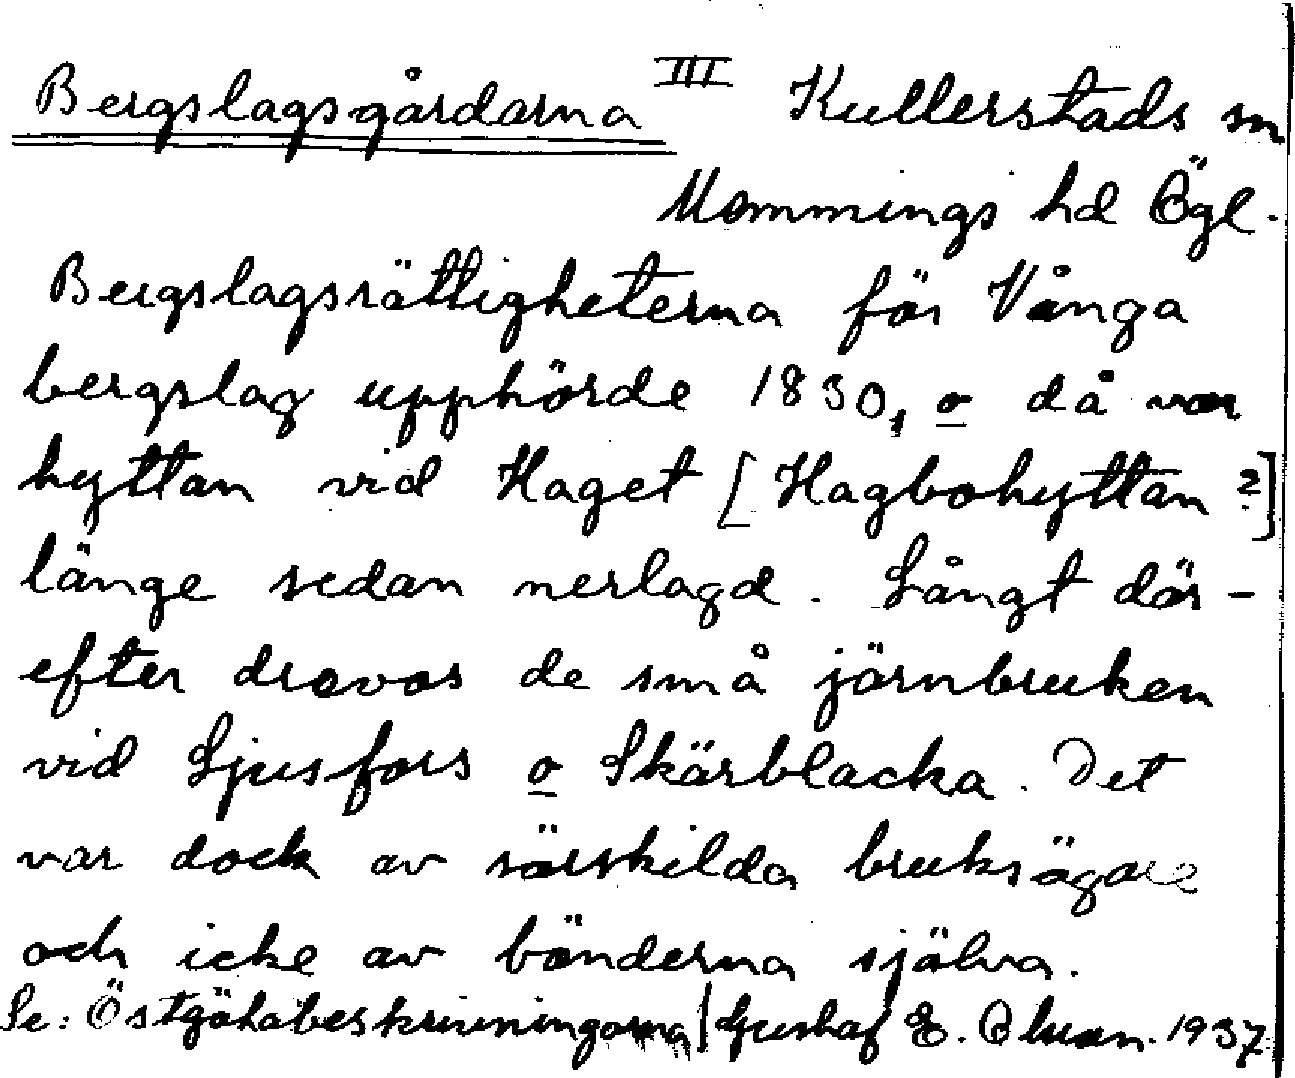 Bergslagsgårdarna III Kullerstads sn
Memmings hd Ögl.
Bergslagsrättigheterna för Vånga
bergslag upphörde 1830, o då var
hyttan vid Haget [Hagbohyttan ?]
länge sedan nerlagd. Långt där-
efter drevos de små järnbruken
vid Ljusfors o Skärblacka. Det
var dock av särskilda bruksägare
och icke av bönderna själva.
Se: Östgötabeskrivningarna / Gustaf E. 1937